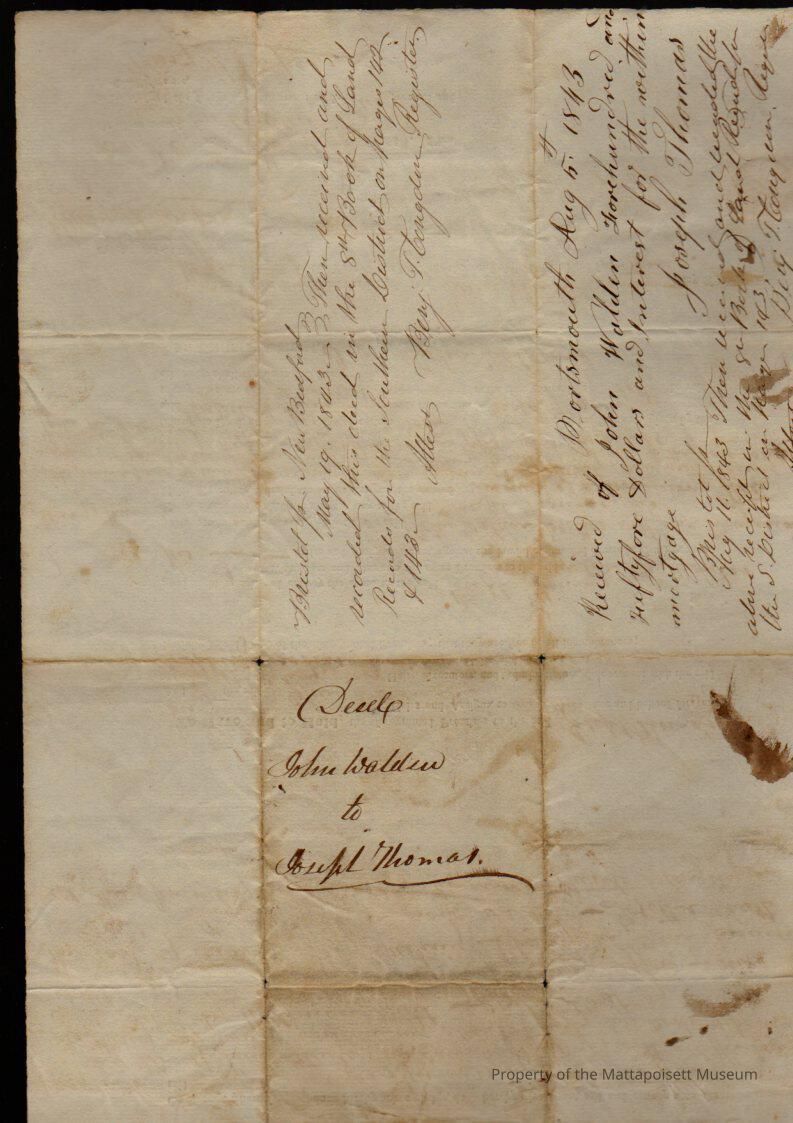 Bristol ss New Bedford
May 19. 1843 Then received and
recorded this deed in the 8th Book of Land
Records for the Southern District on pages 142
& 143
Attest Benj T Congdon Register
Portsmouth Aug 5th 1843
Received of John Walden forehundred and
fiftyfore Dollars and Interest for the within
mortgage
Joseph Thomas
Bristol ss
Aug 11. 1843 Then received and recorded the
above receipt in the 8th Book of Land Records for
the S District on page 143
Attest Benj T Congdon Regr
Deed
John Walden
to
Joseph Thomas.
Property of the Mattapoisett Museum